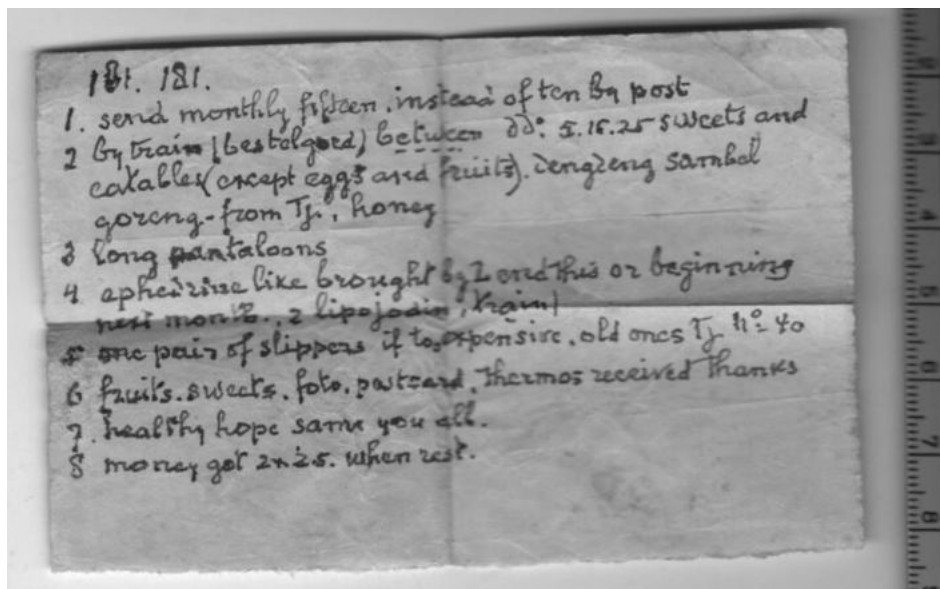 181. 181.
1. send monthly fifteen. instead of ten by post
2 by train (bestelgoed) between dd: 5.15.25 sweets and
eatables (except eggs and fruits). dengdeng sambal
goreng - from Tj., honey
3 long pantaloons
4. ephedrine like brought by I end this or beginning
next month., 2 lipojodin (train)
5 one pair of slippers if to expensive. old ones Tj. no 40
6 fruits. sweets. foto. postcard. thermos received thanks
7. healthy hope same you all.
8 money got 2x25. when rest.